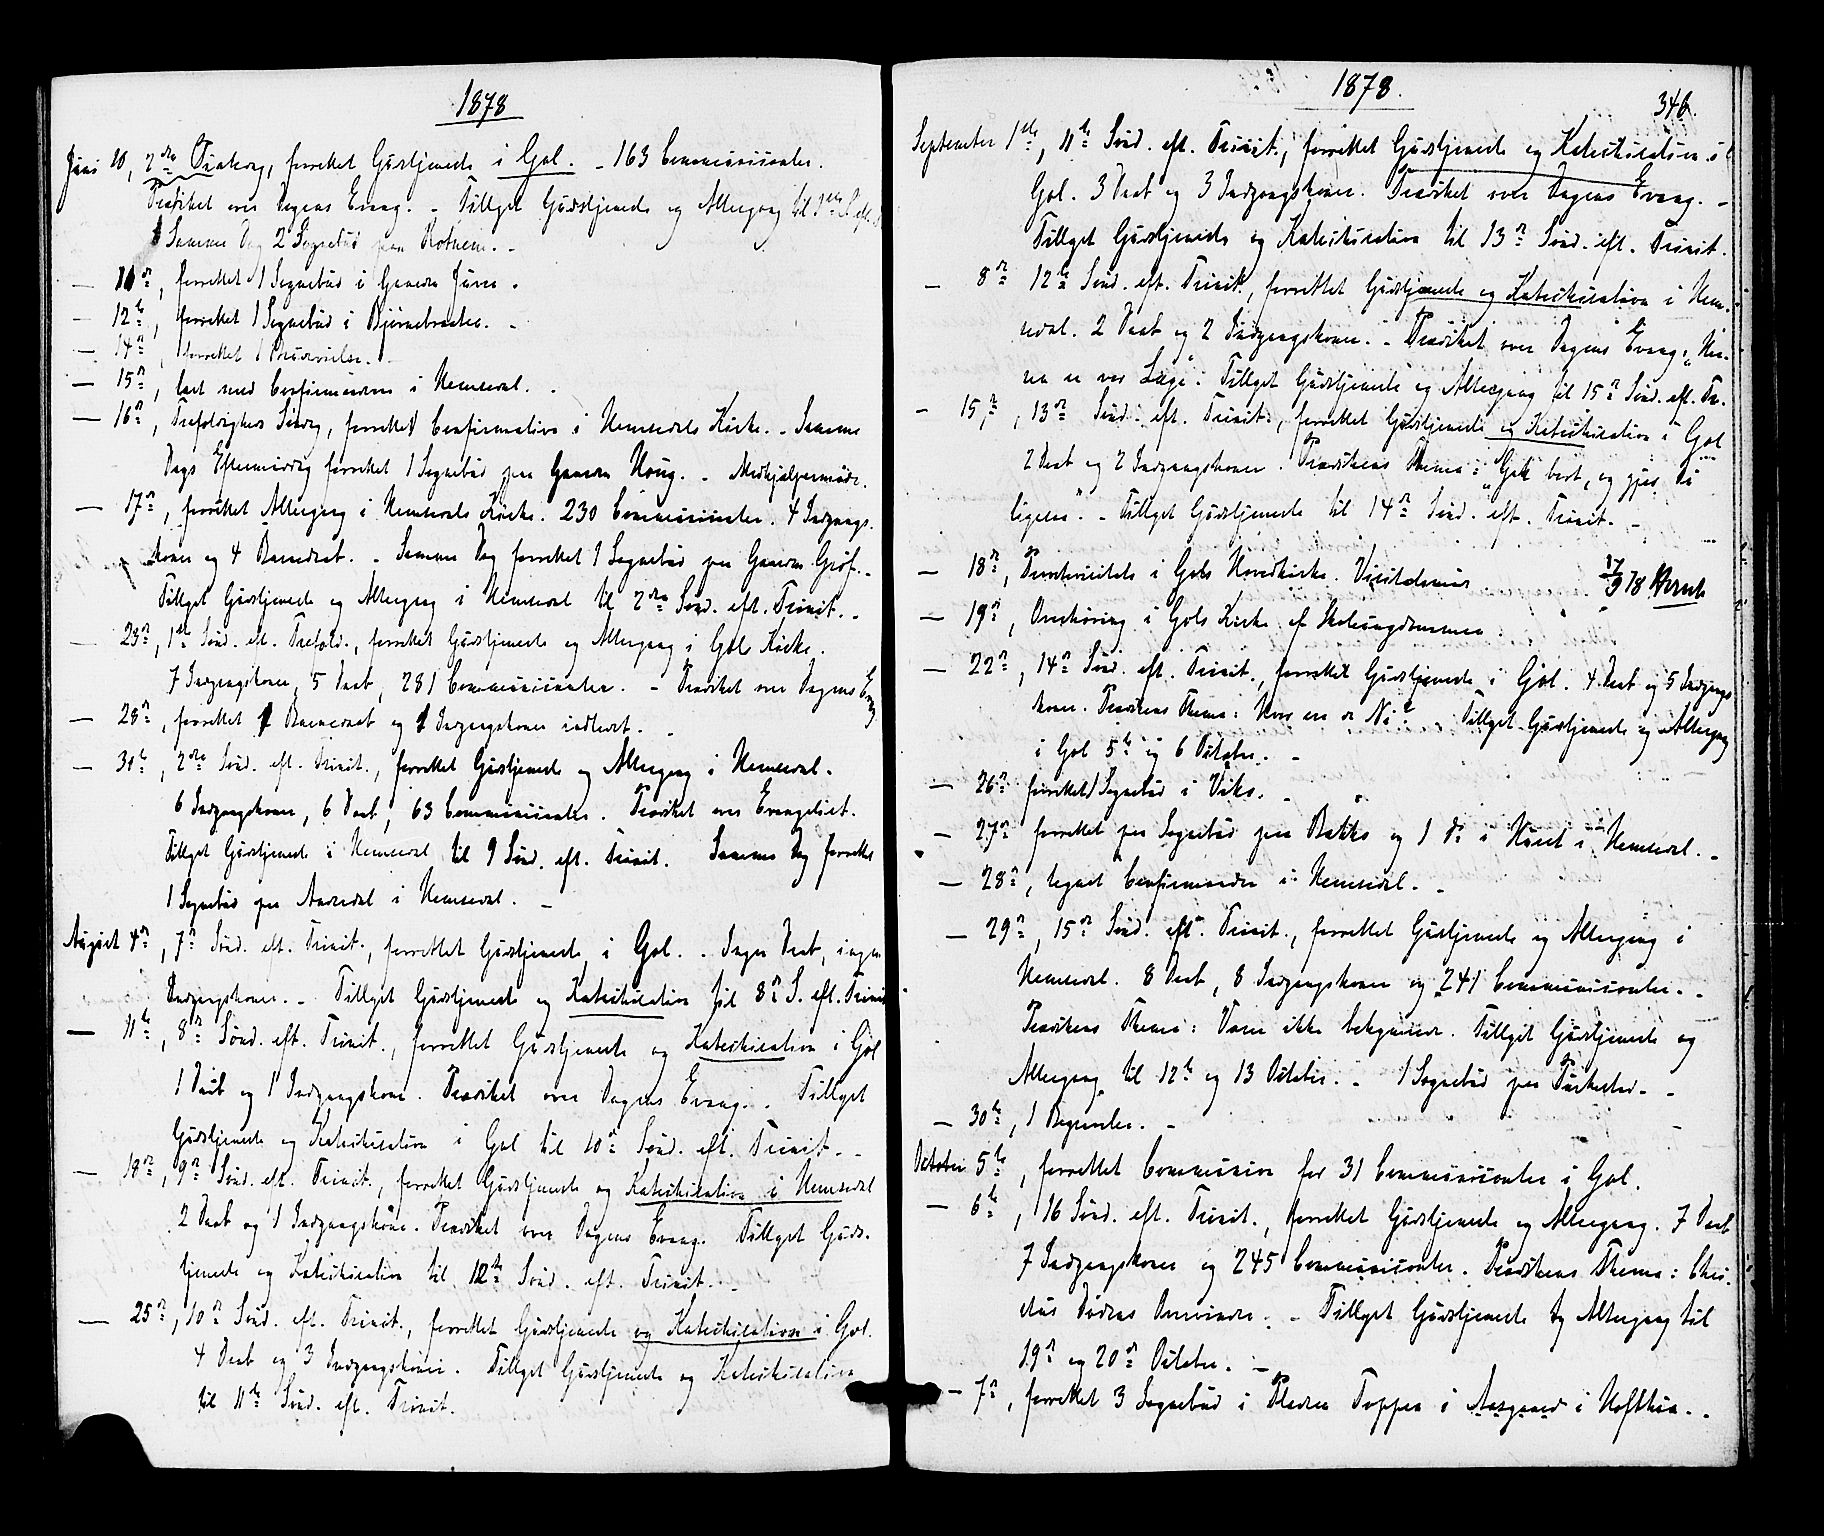 1878
Juni 10, 2den Pintsedag, forrettet Gudstjeneste i Gol. - 163 Communicanter.
Prædiket over Dagens Evang. - Tillyst Gudstjeneste og Altergang til 1ste S. eft.
Samme Dag 2 Sognebud paa Rotneim. -
- 11te, forrettet 1 Sognebud i Granden
- 12te, forrettet 1 Sognebud i Bjørnebraaten. -
- 14de, forrettet 1 Brudevielse. -
- 15de, læst med Confirmanderne i Hemsedal. -
- 16de, Trefoldigheds Søndag, forrettet Confirmation i Hemsedals Kirke. - Samme
Dags Eftermiddag forrettet 1 Sognebud paa Houg. - Medhjælpermøde.
- 17de, forrettet Altergang i Hemsedals Kirke. 230 Communicanter. 4 Indgangs-
koner og 4 Barnedaab. - Samme Dag forrettet 1 Sognebud paa
Tillyst Gudstjeneste og Altergang i Hemsedal til 2den Sønd. eft. Trinit. -
- 23de, 1ste Sønd. eft. Trefold., forrettet Gudstjeneste og Altergang i Gols Kirke.
7 Indgangskoner, 5 Daab, 281 Communicanter. - Prædiket over Dagens Evang
- 28de, forrettet 1 Barnedaab og 1 Indgangskone indledet. -
- 30te, 2den Sønd. eft. Trinit., forrettet Gudstjeneste og Altergang i Hemsedal.
6 Indgangskoner, 6 Daab, 63 Communicanter. Prædiket over Evangeliet.
Tillyst Gudstjeneste i Hemsedal til 9 Sønd. eft. Trinit. Samme Dag forrettet
1 Sognebud paa i Hemsedal. -
August 4de, 7de Sønd. eft. Trinit., forrettet Gudstjeneste i Gol. - Ingen Daab, ingen
Indgangskoner. - Tillyst Gudstjeneste og Katechisation til 8de S. eft. Trinit
- 11te, 8de Sønd. eft. Trinit., forrettet Gudstjeneste og Katechisation i Gol
1 Daab og 1 Indgangskone. Prædiket over Dagens Evang. - Tillyst
Gudstjeneste og Katechisation i Gol til 10de Sønd. eft. Trinit. -
- 18de, 9de Sønd. eft. Trinit., forrettet Gudstjeneste og Katechisation i Hemsedal
2 Daab og 1 Indgangskone. Prædiket over Dagens Evang. Tillyst Guds-
tjeneste og Katechisation til 12te Sønd. eft. Trinit. -
- 25de, 10de Sønd. eft. Trinit., forrettet Gudstjeneste og Katechisation i Gol.
4 Daab og 3 Indgangskoner. Tillyst Gudstjeneste og Katechisation
til 11te Sønd. eft. Trinit.
1878.
346.
September 1ste, 11te Sønd. eft. Trinit., forrettet Gudstjeneste og Katechisation i
Gol. 3 Daab og 3 Indgangskoner. Prædiket over Dagens Evang. -
Tillyst Gudstjeneste og Katechisation til 13de Sønd. eft. Trinit.
- 8de 12te Sønd. eft. Trinit., forrettet Gudstjeneste og Katechisation i Hem-
sedal. 2 Daab og 2 Indgangskoner. - Prædiket over Dagens Evang:
er vor Læge". Tillyst Gudstjeneste og Altergang til 15de Sønd. eft. Tr.
- 15de, 13de Sønd. eft. Trinit., forrettet Gudstjeneste og Katechisation i Gol
2 Daab og 2 Indgangskoner. Prædikens Thema: "Gak bort, og gjør Du
ligesaa". - Tillyst Gudstjeneste til 14de Sønd. eft. Trinit. -
- 18de, Provstevisitats i Gols Hovedkirke. 17/9 78
- 19de, Overhøring i Gols Kirke af Skoleungdommen.
- 22de, 14de Sønd. eft. Trinit., forrettet Gudstjeneste i Gol. 4 Daab og 5 Indgangs
koner. Prædikens Thema: Hvor ere de Ni? - Tillyst Gudstjeneste og Altergang
i Gol 5te og 6 October. -
- 26de forrettet 1 Sognebud i Viko. -
- 27de forrettet paa Sognebud paa Bakko og 1 do i i Hemsedal. -
- 28de, tegnet Confirmander i Hemsedal. -
- 29de, 15de Sønd. eft. Trinit., forrettet Gudstjeneste og Altergang i
Hemsedal. 8 Daab, 8 Indgangskoner og 241 Communicanter. -
Prædikens Thema: Værer ikke bekymrede. Tillyst Gudstjeneste og
Altergang til 12te og 13 October. - 1 Sognebud paa -
- 30te, 1 Begravelse. -
October 5te, forrettet Communion for 31 Communicanter i Gol.
- 6te, 16 Sønd. eft. Trinit., forrettet Gudstjeneste og Altergang. 7 Daab
7 Indgangskoner og 245 Communicanter. Prædikens Thema: Chri-
stus Dødens Overvinder. - Tillyst Gudstjeneste og Altergang til
19de og 20de October. -
- 7de, forrettet 3 Sognebud i Pladsen Toppen i Aasgaard i Ufthun. -